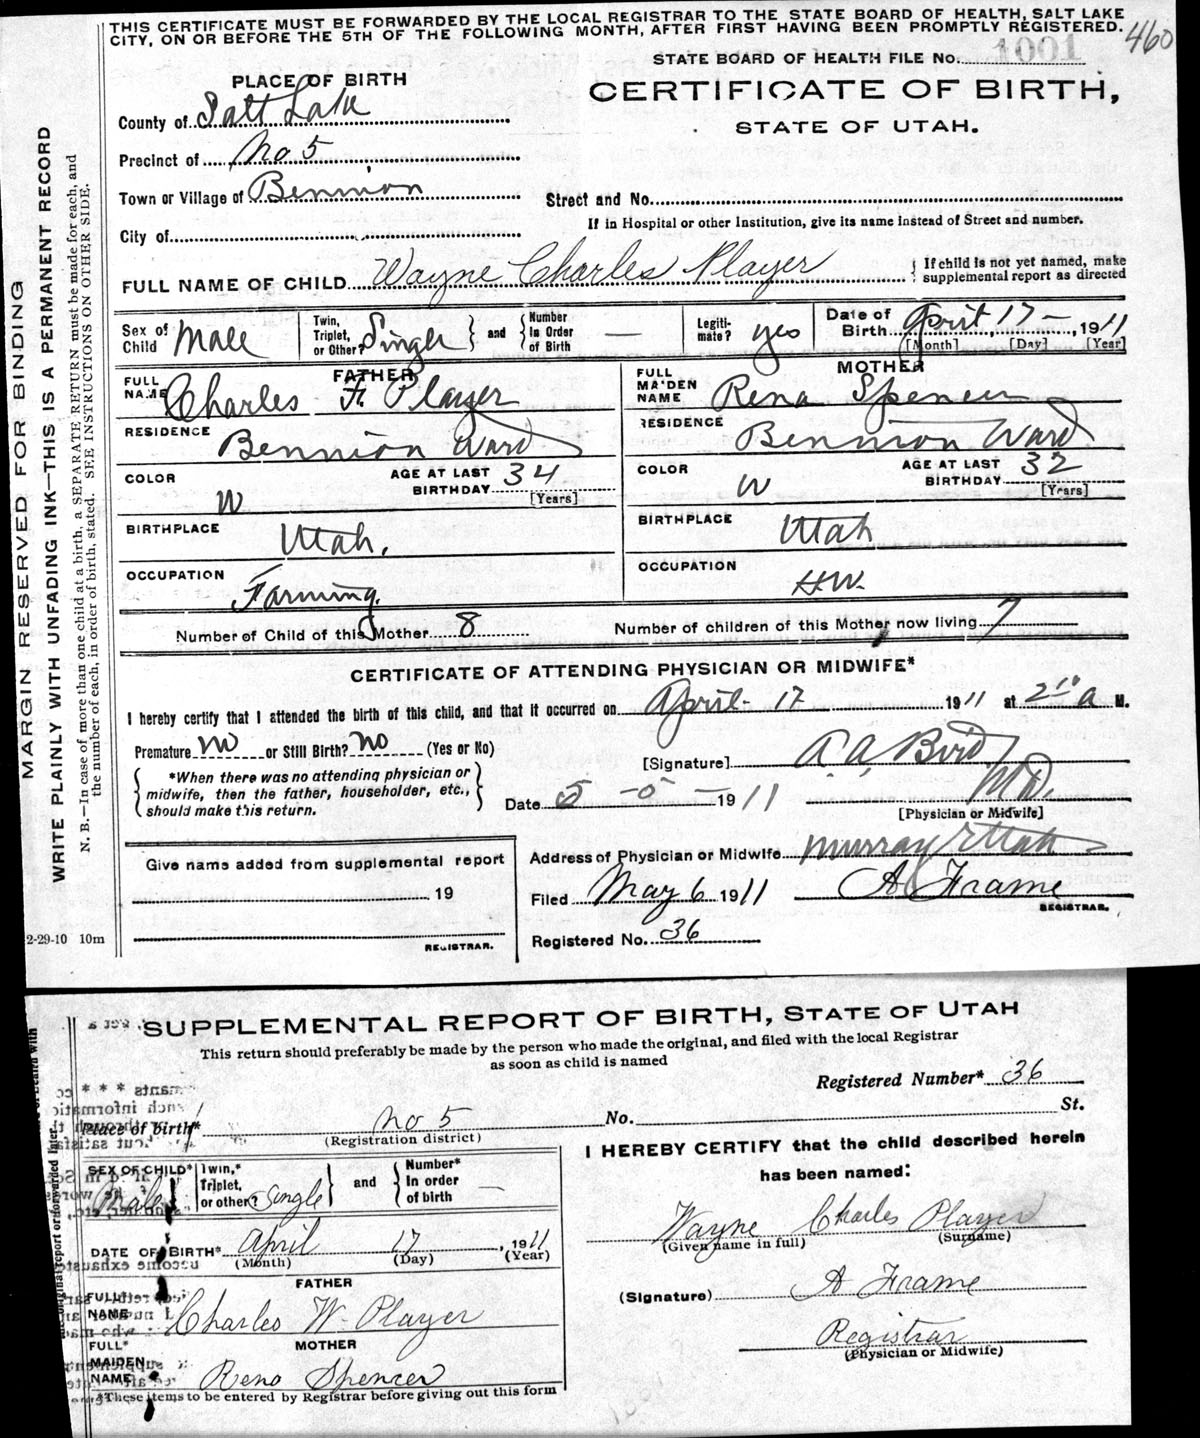 THIS CERTIFICATE MUST BE FORWARDED BY THE LOCAL REGISTRAR TO THE STATE BOARD OF HEALTH, SALT LAKE
CITY, ON OR BEFORE THE 5TH OF THE FOLLOWING MONTH, AFTER FIRST HAVING BEEN PROMPTLY REGISTERED.
460
STATE BOARD OF HEALTH FILE No. 1001
CERTIFICATE OF BIRTH,
STATE OF UTAH.
PLACE OF BIRTH
County of Salt Lake
Precinct of No 5
Town or Village of Bennion
City of
Street and No.
If in Hospital or other Institution, give its name instead of Street and number.
FULL NAME OF CHILD Wayne Charles Player
If child is not yet named, make
supplemental report as directed
Sex of Child Male
Twin, Triplet, or Other? Single and Number In Order of Birth —
Legiti-mate? yes
Date of Birth April 17 —, 1911
[Month] [Day] [Year]
FATHER
FULL NAME Charles F. Player
RESIDENCE Bennion Ward
COLOR W
AGE AT LAST BIRTHDAY 34
[Years]
BIRTHPLACE Utah.
OCCUPATION Farming.
MOTHER
FULL MAIDEN NAME Rena Spencer
RESIDENCE Bennion Ward
COLOR W
AGE AT LAST BIRTHDAY 32
[Years]
BIRTHPLACE Utah
OCCUPATION HW.
Number of Child of this Mother 8
Number of children of this Mother now living 7
CERTIFICATE OF ATTENDING PHYSICIAN OR MIDWIFE*
I hereby certify that I attended the birth of this child, and that it occurred on April 17 1911 at 2 10 a M.
Premature no or Still Birth? no (Yes or No)
*When there was no attending physician or
midwife, then the father, householder, etc.,
should make this return.
[Signature] A. A. Bird
M.D.
[Physician or Midwife]
Date 5 - 5 - 1911
Give name added from supplemental report
19
REGISTRAR.
Address of Physician or Midwife Murray Utah
Filed May 6 1911
A Frame
REGISTRAR.
Registered No. 36
2-29-10 10m
MARGIN RESERVED FOR BINDING
WRITE PLAINLY WITH UNFADING INK—THIS IS A PERMANENT RECORD
N. B.—In case of more than one child at a birth, a SEPARATE RETURN must be made for each, and
the number of each, in order of birth, stated. SEE INSTRUCTIONS ON OTHER SIDE.
SUPPLEMENTAL REPORT OF BIRTH, STATE OF UTAH
This return should preferably be made by the person who made the original, and filed with the local Registrar
as soon as child is named
Registered Number* 36
Place of birth* No 5 No. St.
(Registration district)
SEX OF CHILD* Male
Twin,* Triplet, or other? Single and Number* In order of birth —
DATE OF BIRTH* April 17, 1911
(Month) (Day) (Year)
FATHER
FULL* NAME Charles W. Player
MOTHER
FULL* MAIDEN NAME Rena Spencer
*These items to be entered by Registrar before giving out this form
I HEREBY CERTIFY that the child described herein
has been named:
Wayne Charles Player
(Given name in full) (Surname)
(Signature) A Frame
Registrar
(Physician or Midwife)